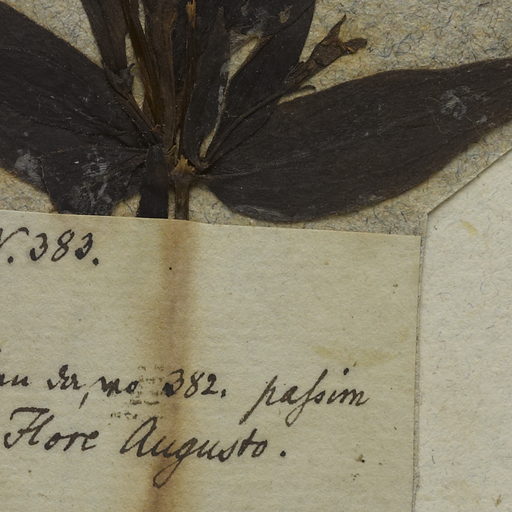 N. 383.
da, wo 382. passim
Flore Augusto.